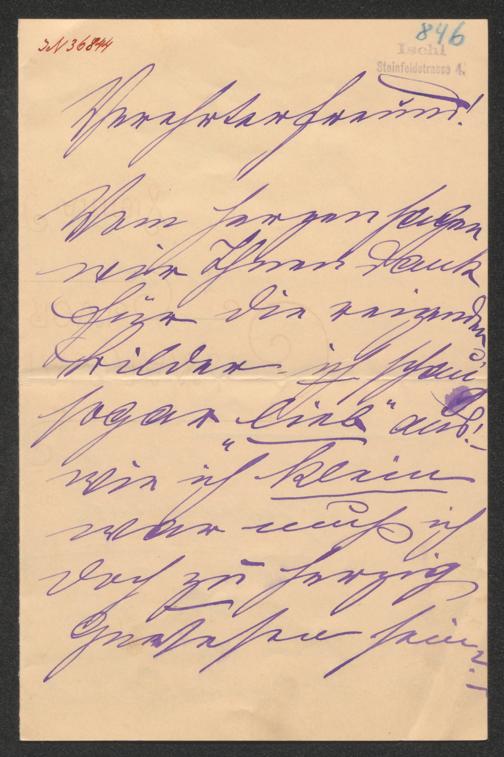 IN 36844
846
Ischl
Steinfeldstrasse 4.
Verehrter Freund!
Vom Herzen sagen
wir Ihnen Dank
für die reizenden
Bilder. ich schau
sogar „lieb" aus!
wie ich klein
war muß ich
doch zu herzig
gewesen sein?!